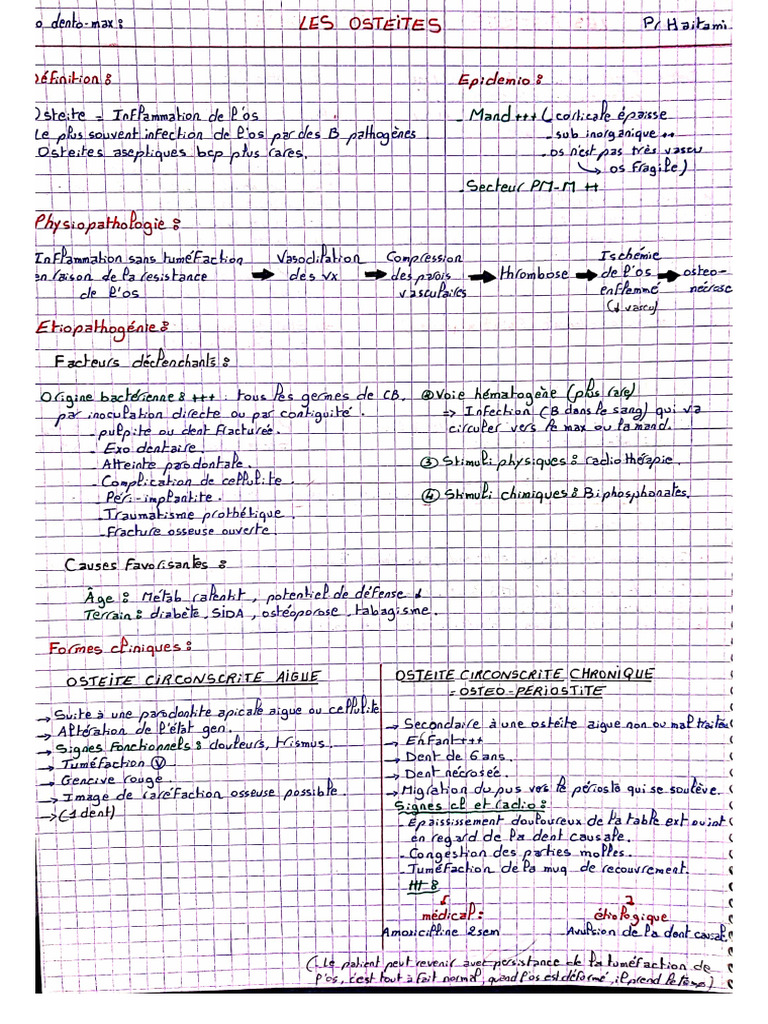 o dento-max :
LES OSTEITES
Pr Haitami
Définition :
Osteite = Inflammation de l'os
Le plus souvent infection de l'os par des B pathogènes.
Osteites aseptiques bcp plus rares.
Epidemio :
- Mand +++ ( corticale épaisse
- sub inorganique ++
- os n'est pas très vascu
↳ os fragile)
- Secteur PM-M ++
Physiopathologie :
Inflammation sans tuméfaction
en raison de la resistance
de l'os
➡ Vasodilatation
des vx
➡ Compression
des parois
vasculaires
➡ thrombose ➡
Ischémie
de l'os
enflammé
(↓ vascu)
➡ osteo-
nécrose
Etiopathogénie :
Facteurs déclenchants :
Origine bactérienne : +++ : tous les germes de CB.
par inoculation directe ou par contiguité.
- pulpite ou dent fracturée.
- Exo dentaire.
- Atteinte parodontale.
- Complication de cellulite.
- Péri-implantite.
- Traumatisme prothétique.
- Fracture osseuse ouverte.
② Voie hématogène (plus rare)
=> Infection (CB dans le sang) qui va
circuler vers le max ou la mand.
③ Stimuli physiques : radiothérapie.
④ Stimuli chimiques : Biphosphonates.
Causes Favorisantes :
Âge : Métab ralentit, potentiel de défense ↓
Terrain : diabète, SIDA, ostéoporose, tabagisme.
Formes cliniques :
OSTEITE CIRCONSCRITE AIGUE
→ Suite à une parodontite apicale aigue ou cellulite
→ Altération de l'état gen.
→ Signes fonctionnels : douleurs, trismus.
→ Tuméfaction Ⓥ
→ Gencive rouge.
→ Image de raréfaction osseuse possible.
→ (1 dent)
OSTEITE CIRCONSCRITE CHRONIQUE
= OSTEO-PERIOSTITE
→ Secondaire à une osteite aigue non ou mal traitée
→ Enfant +++
→ Dent de 6 ans.
→ Dent nécrosée.
→ Migration du pus vers le périoste qui se soulève.
Signes cl et radio :
- Epaississement douloureux de la table ext ou int
en regard de la dent causale.
- Congestion des parties molles.
- Tuméfaction de la muq de recouvrement.
médical :
Amoxicilline 2sem
étiologique
Avulsion de la dent causale
(. Le patient peut revenir avec persistance de la tuméfaction de
l'os, c'est tout à fait normal, quand l'os est déformé, il prend le temps)